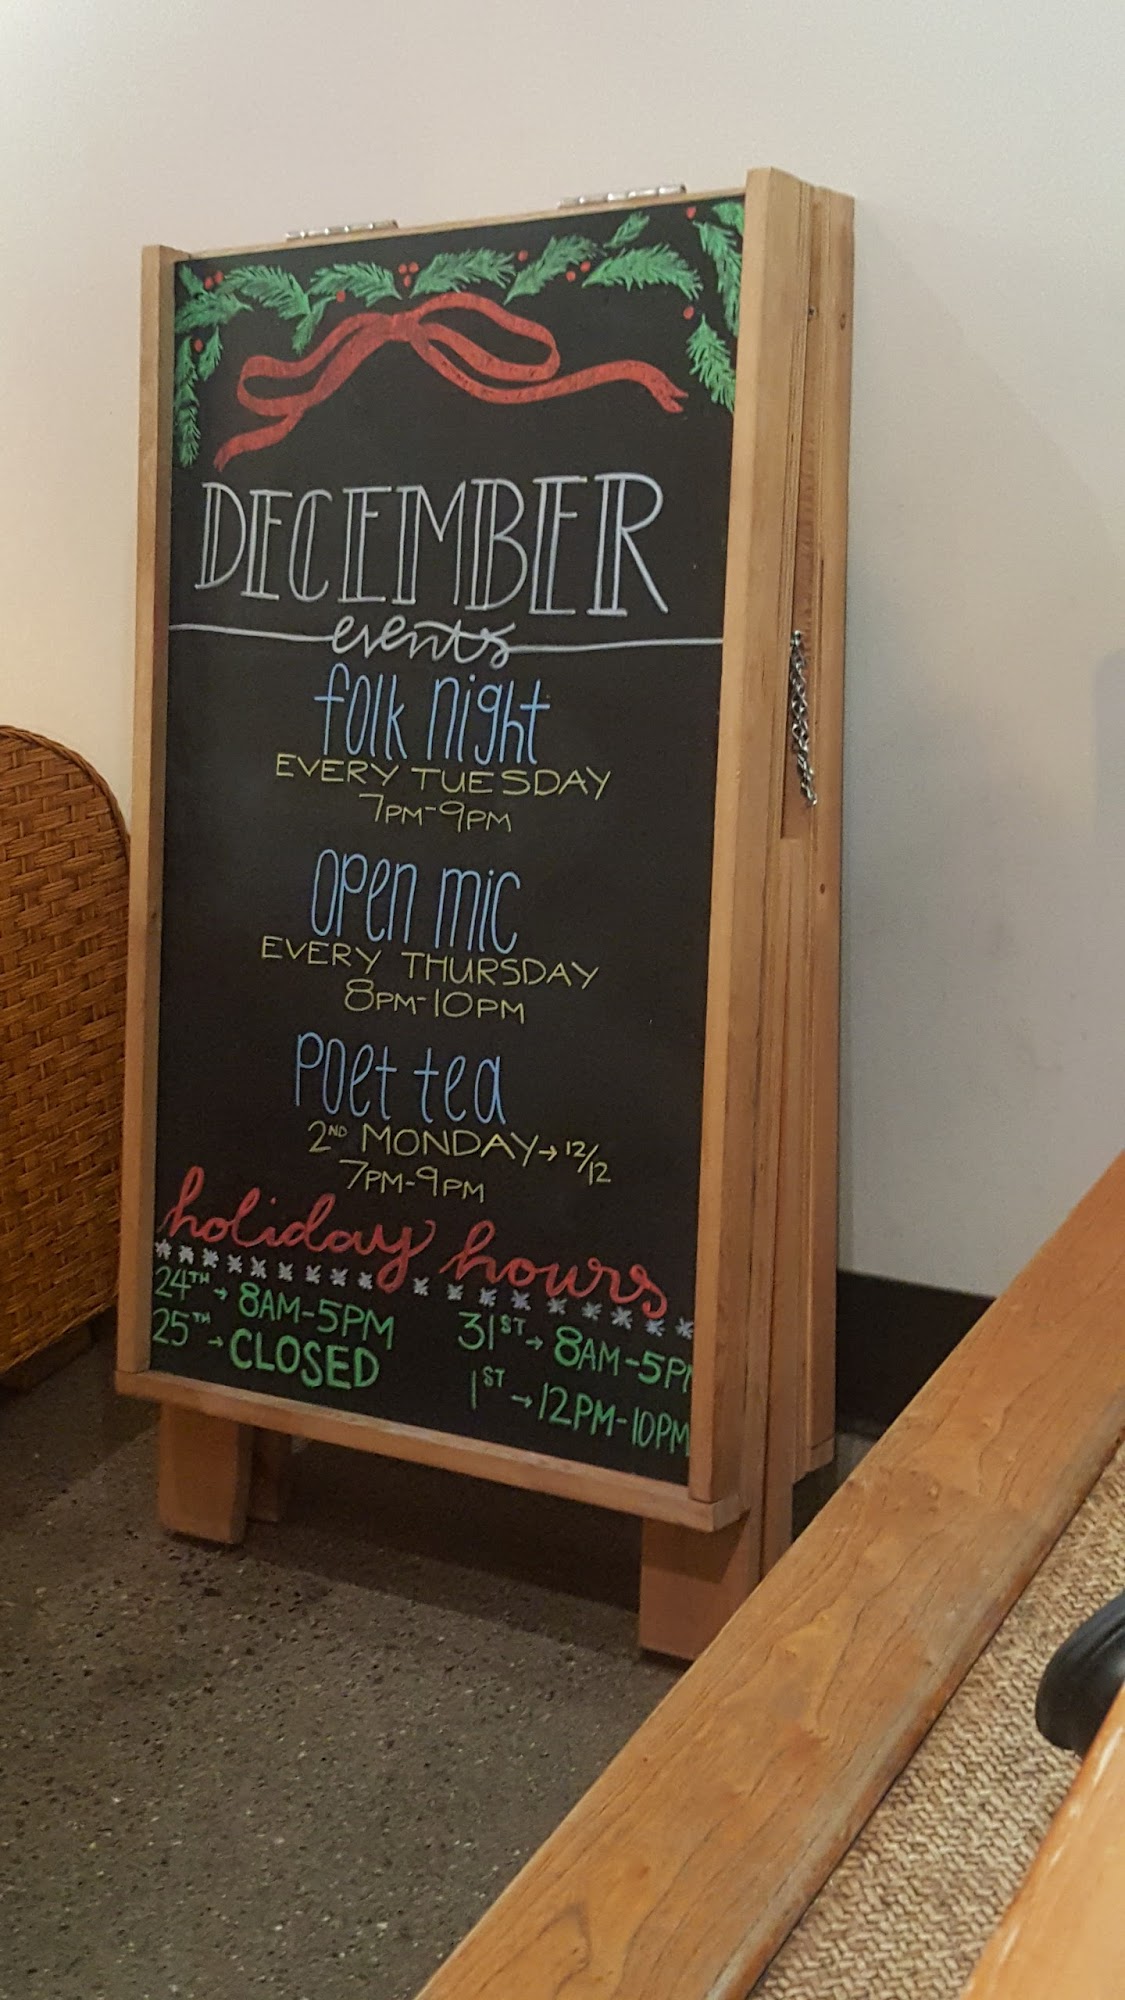 DECEMBER
events
folk night
EVERY TUESDAY
7PM-9PM
open mic
EVERY THURSDAY
8PM-10PM
poet tea
2ND MONDAY → 12/12
7PM-9PM
holiday hours
24TH → 8AM-5PM
25TH → CLOSED
31ST → 8AM-5PM
1ST → 12PM-10PM